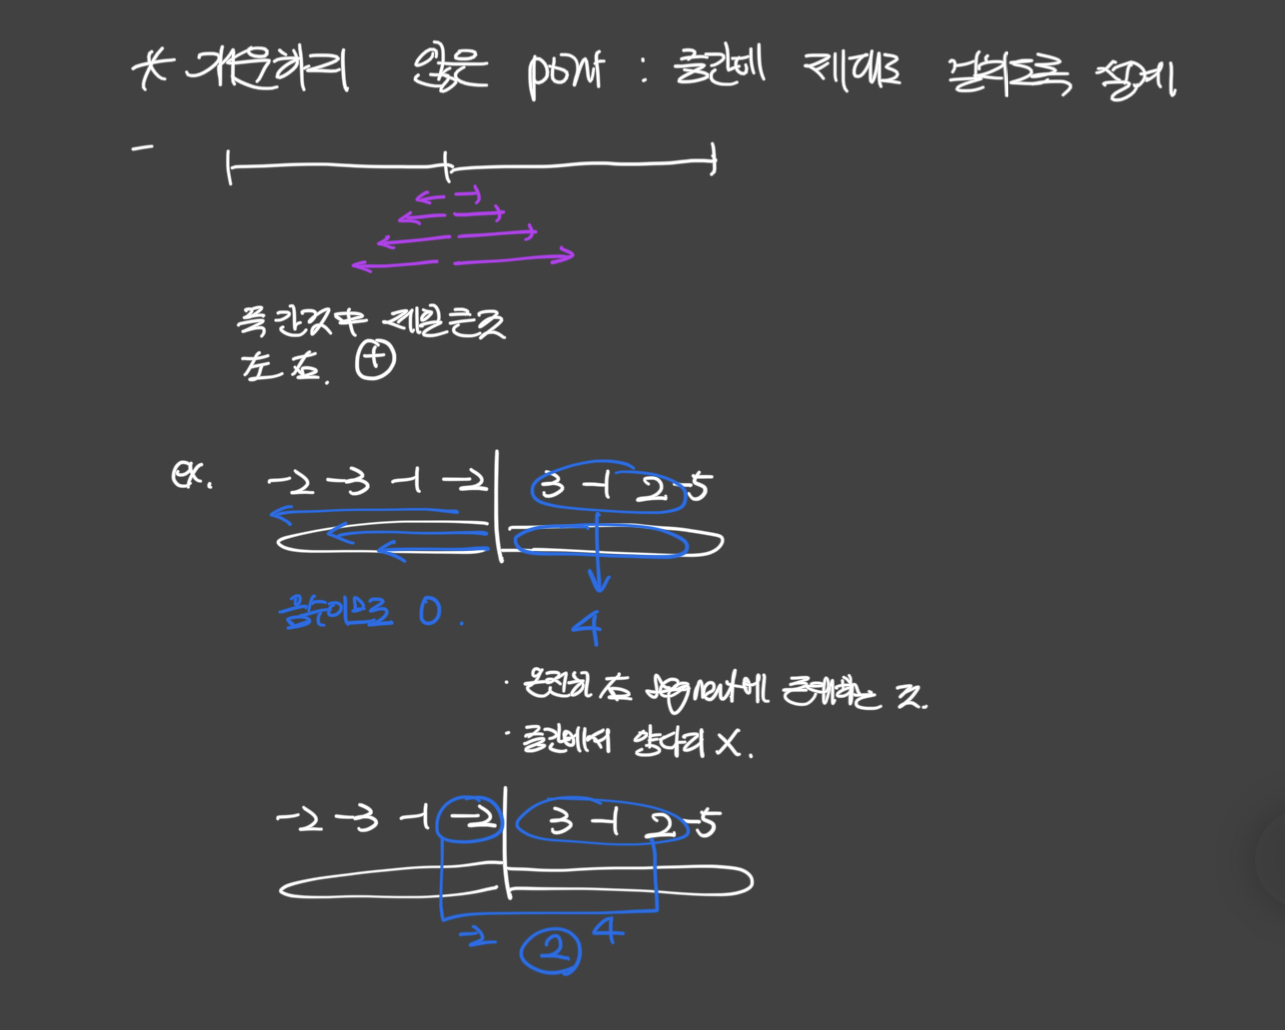 * 갸우뚱하지 않은 point : 중간에 제대로 걸리도록 설계
-
쭉 간것中 제일 큰것
左 右. +
ex. -2 -3 -1 -2 3 -1 2 -5
음수이므로 0.
4
· 온전히 右 segment에 존재하는 것.
· 중간에서 양다리 X.
-2 -3 -1 -2 3 -1 2 -5
-2 2 4